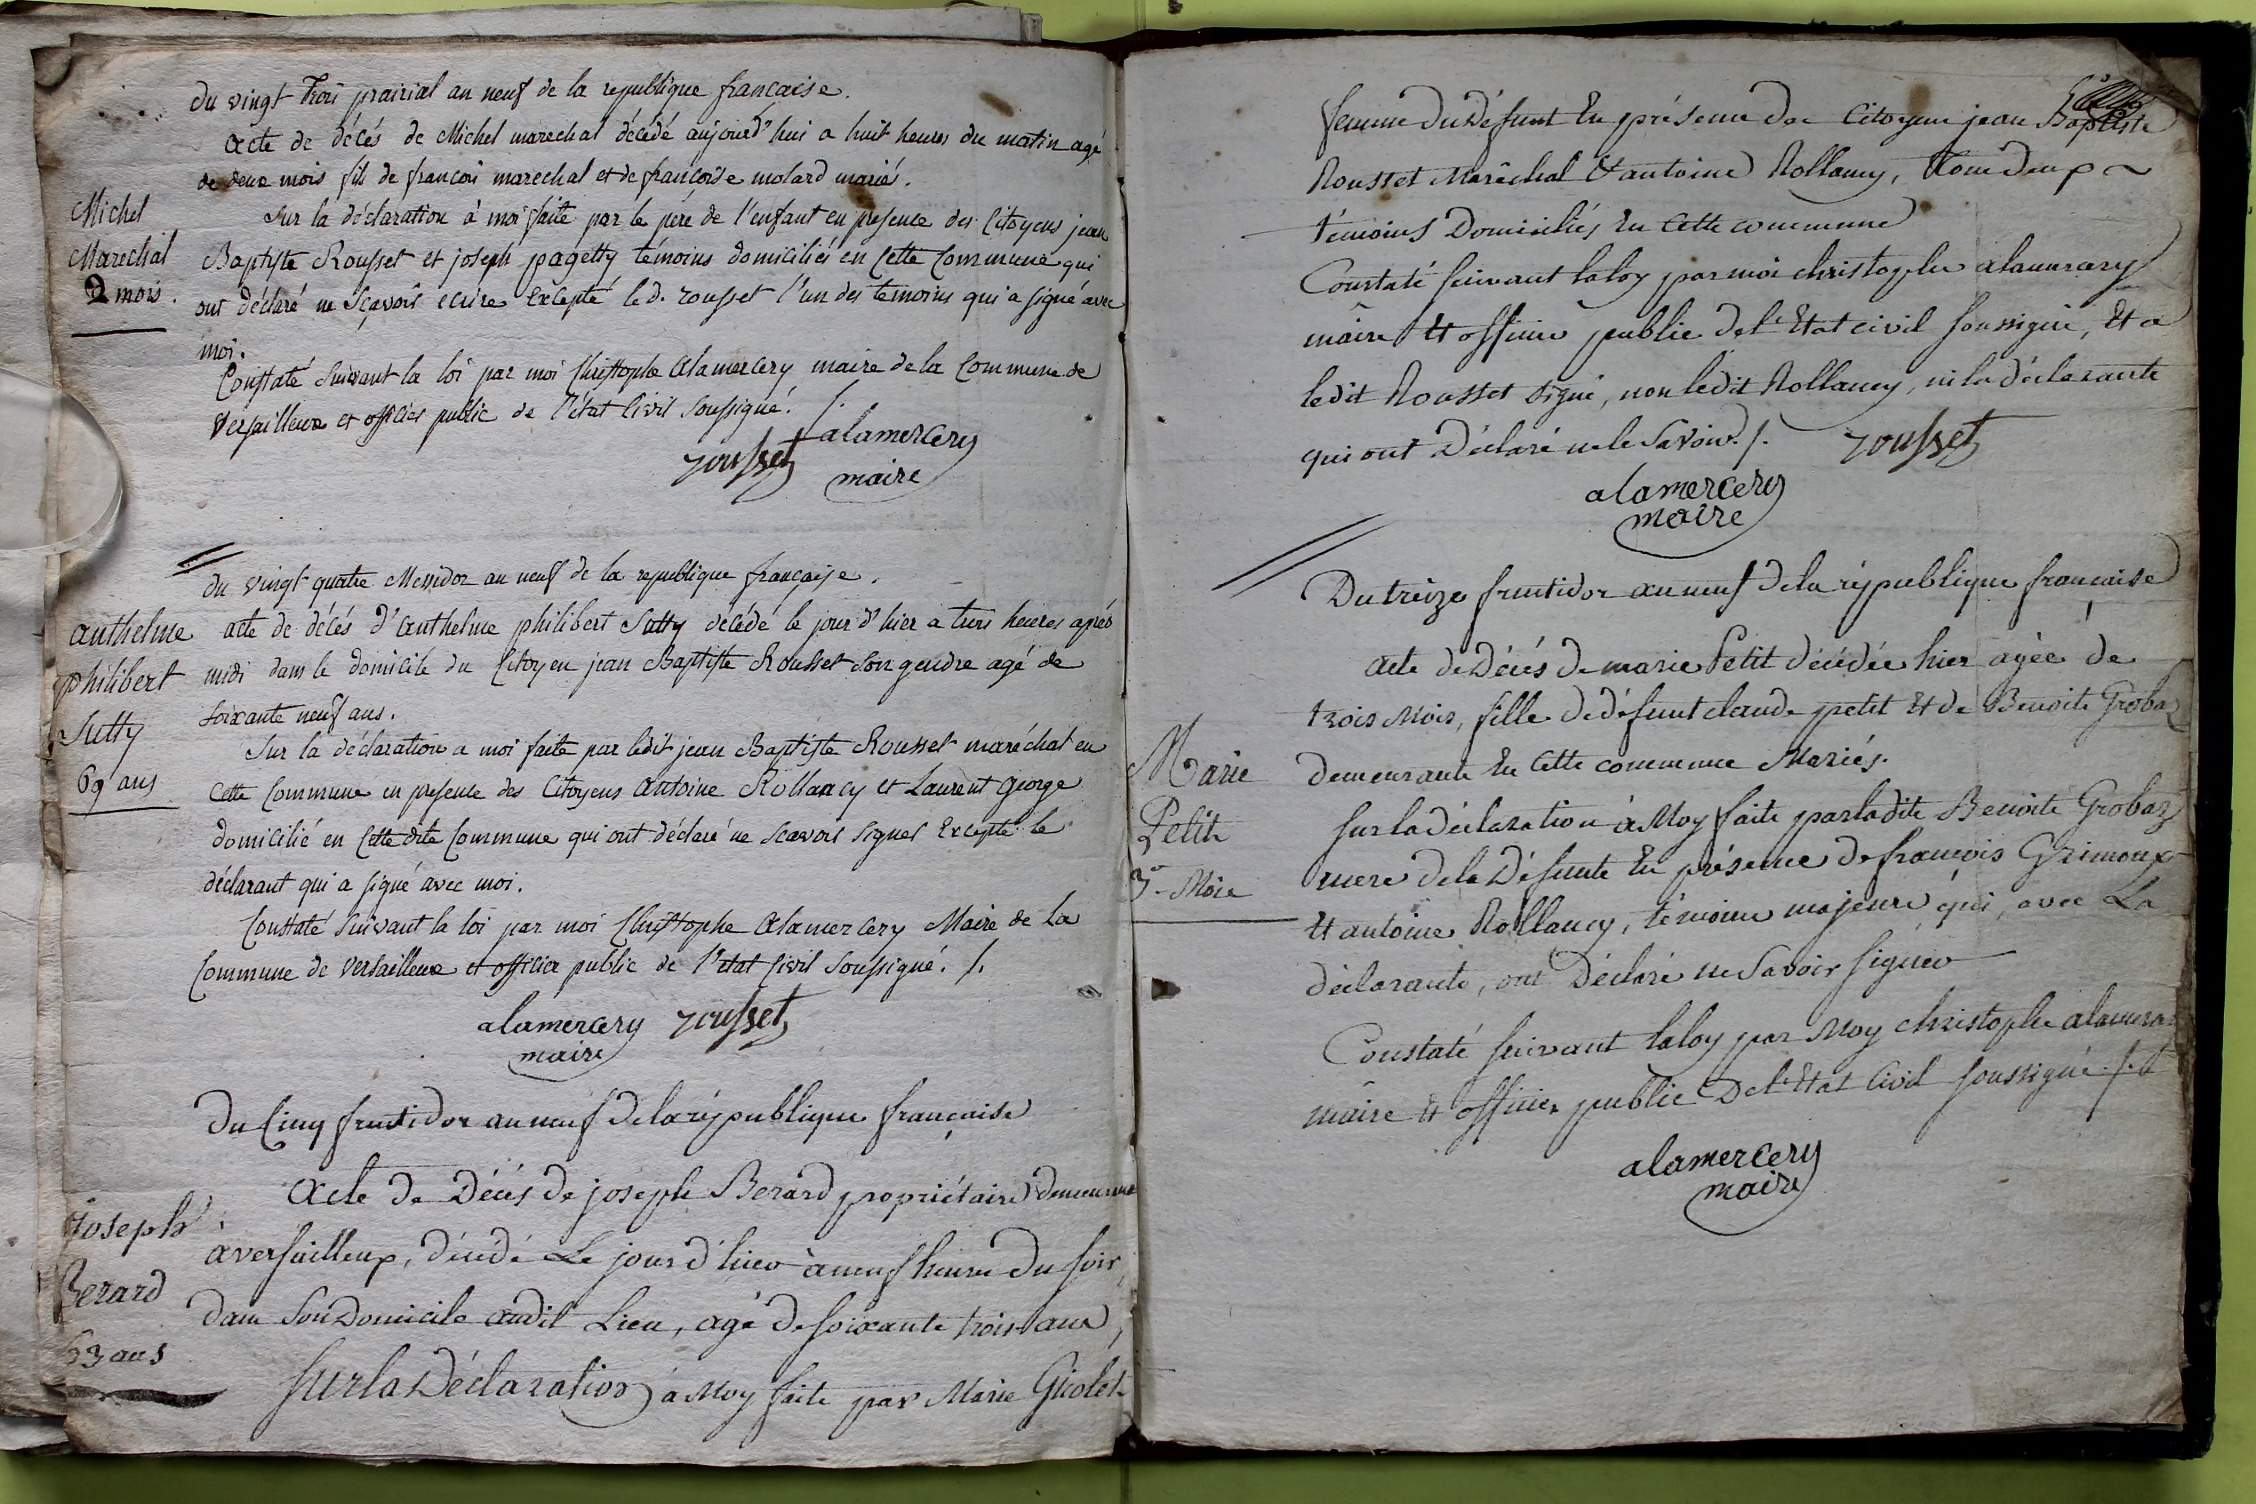 du vingt trois prairial an neuf de la republique francaise.
acte de décés de Michel marechal décédé aujourd'hui a huit heures du matin agé
de deux mois fils de francois marechal et de françoise molard mariés.
Michel
Marechal
2 mois.
Sur la déclaration à moi faite par le pére de l'enfant en presence des Citoyens jean
Baptiste Rousset et joseph pagetty témoins domiciliés en Cette Commune qui
ont déclaré ne Sçavoir ecrire Excepté le d. rousset l'un des temoins qui a signé avec
moi.
Constaté Suivant la loi par moi Christophe alamercery maire de la Commune de
Versailleux et officier public de l'état Civil Soussigné. /.
rousset alamercery
maire
du vingt quatre Messidor an neuf de la republique française.
anthelme
philibert
Sutty
69 ans
acte de décés d'anthelme philibert Sutty décédé le jour d'hier a trois heures aprés
midi dans le domicile du Citoyen jean Baptiste Rousset Son gendre agé de
Soixante neuf ans.
Sur la déclaration a moi faite par ledit jean Baptiste Rousset maréchal en
Cette Commune en presence des Citoyens antoine Rollancy et Laurent George
domicilié en Cette dite Commune qui ont déclaré ne Scavoir Signer Excepté le
déclarant qui a signé avec moi.
Constaté Suivant la loi par moi Christophe alamercery Maire de la
Commune de Versailleux et officier public de l'etat Civil Soussigné. /.
alamercery rousset
maire
Du Cinq fructidor an neuf de la république française
Joseph
Berard
63 ans
Acte de Décés de joseph Berard propriétaire demeurant
à versailleux, décédé Le jour d'hier à neuf heures du soir,
dans Son Domicile audit Lieu, agé de soixante trois ans,
Sur la Déclaration à Moy faite par Marie Gicolet
femme du Défunt En présence des Citoyens jean Baptiste
Rousset Maréchal & antoine Rollancy, tous deux ~
témoins Domiciliés en Cette commune
Constaté suivant la loy par moi christophe alamercery
maire & officier public de l'Etat civil soussigné, Et a
ledit Rousset signé, non ledit Rollancy, ni la déclarante
qui ont Déclaré ne le Savoir. /. rousset
alamercery
maire
Du treize fructidor an neuf de la république française
Marie
Petit
3 Mois
acte de Décés de marie Petit décédée hier agée de
trois Mois, fille de défunt claude petit & de Benoite Grobaz
demeurante En Cette commune Mariés.
sur la déclaration à Moy faite par ladite Benoite Grobaz
mere de la Défunte En présence de françois Grimoux
& antoine Rollancy, témoins majeurs qui, avec La
déclarante, ont Déclaré ne Savoir signer
Constaté suivant la loy par Moy christophe alamercery
maire & officier public De l'Etat Civil soussigné. /.
alamercery
maire